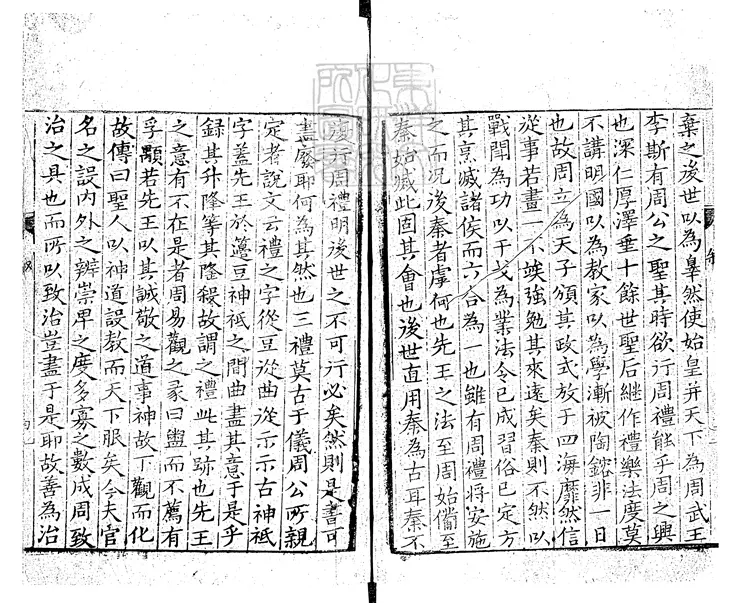 棄之後世以為辠然使始皇并天下為周武王
李斯有周公之聖其時欲行周禮能乎周之興
也深仁厚澤垂十餘世聖后繼作禮樂法度莫
不講明國以為教家以為學漸被陶鎔非一日
也故周立為天子頒其政式放于四海靡然信
從事若畫一不竢強勉其來遠矣秦則不然以
戰鬬為功以干戈為業法令已成習俗已定方
其烹滅諸侯而六合為一也雖有周禮將安施
之而况後秦者虖何也先王之法至周始備至
秦始滅此固其會也後世直用秦為古耳秦不
復行周禮明後世之不可行必矣然則是書可
盡廢耶何為其然也三禮莫古于儀周公所親
定者說文云禮之字從豆從曲從示示古神祇
字蓋先王於籩豆神祇之間曲盡其意于是乎
録其升隆等其隆殺故謂之禮此其跡也先王
之意有不在是者周易觀之彖曰盥而不薦有
孚顒若先王以其誠敬之道事神故下觀而化
故傳曰聖人以神道設教而天下服矣今夫官
名之設内外之辨崇卑之度多寡之數成周致
治之具也而所以致治豈盡于是耶故善為治